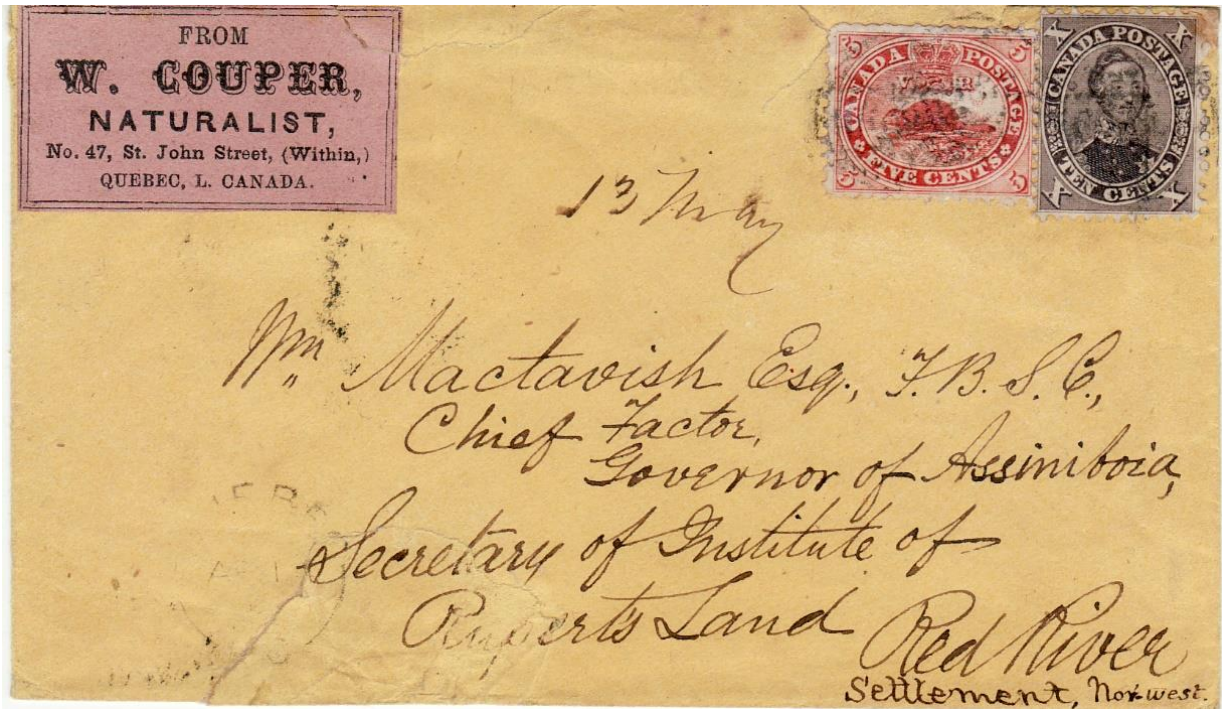 FROM
W. COUPER,
NATURALIST,
No. 47, St. John Street, (Within,)
QUEBEC, L. CANADA.
5 5
CANADA POSTAGE
FIVE CENTS
5 5
X X
CANADA POSTAGE
TEN CENTS
X X
13 May
Wm Mactavish Esq., F.B.S.C.,
Chief Factor,
Governor of Assiniboia,
Secretary of Institute of
Rupert's Land Red River
Settlement, Nor-west.